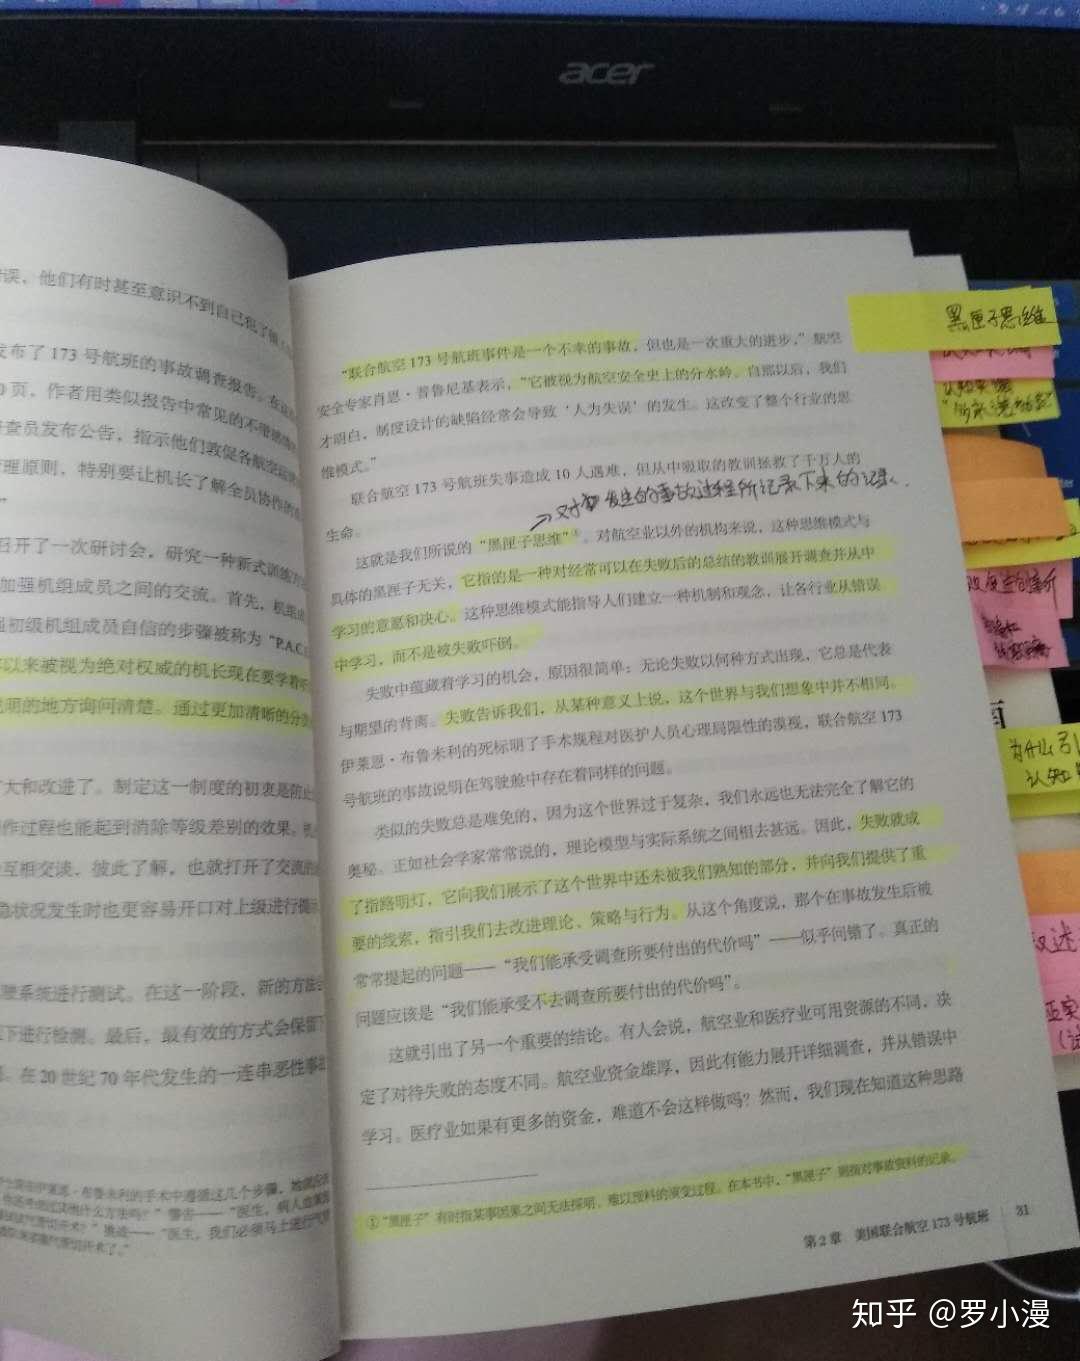 acer
误，他们有时甚至意识不到自己犯了
发布了 173 号航班的事故调查报告。在这
页，作者用类似报告中常见的不带感情
查员发布公告，指示他们敦促各航空
管理原则，特别要让机长了解全员协作的
”
召开了一次研讨会，研究一种新式训练方
加强机组成员之间的交流。首先，机组成
初级机组成员自信的步骤被称为“P.A.C.E
以来被视为绝对权威的机长现在要学着
明的地方询问清楚。通过更加清晰的分
大和改进了。制定这一制度的初衷是防止
作过程也能起到消除等级差别的效果。机
互相交谈，彼此了解，也就打开了交流的
急状况发生时也更容易开口对上级进行提
驶系统进行测试。在这一阶段，新的方法
下进行检测。最后，最有效的方式会保留下
。在 20 世纪 70 年代发生的一连串恶性事
伊莱恩·布鲁米利的手术中遵循这几个步骤，她
什么方法吗？”警告——“医生，病人血氧
气管切开术？”挑战——“医生，我们必须马上进行气管
气管切开术了。”
“联合航空 173 号航班事件是一个不幸的事故，但也是一次重大的进步，”航空
安全专家肖恩·普鲁尼基表示，“它被视为航空安全史上的分水岭。自那以后，我们
才明白，制度设计的缺陷经常会导致‘人为失误’的发生。这改变了整个行业的思
维模式。”
联合航空 173 号航班失事造成 10 人遇难，但从中吸取的教训拯救了千万人的
生命。
→对 发生的事故过程所记录下来的记录.
这就是我们所说的“黑匣子思维”①。对航空业以外的机构来说，这种思维模式与
具体的黑匣子无关，它指的是一种对经常可以在失败后的总结的教训展开调查并从中
学习的意愿和决心。这种思维模式能指导人们建立一种机制和观念，让各行业从错误
中学习，而不是被失败吓倒。
失败中蕴藏着学习的机会，原因很简单：无论失败以何种方式出现，它总是代表
与期望的背离。失败告诉我们，从某种意义上说，这个世界与我们想象中并不相同。
伊莱恩·布鲁米利的死标明了手术规程对医护人员心理局限性的漠视，联合航空 173
号航班的事故说明在驾驶舱中存在着同样的问题。
类似的失败总是难免的，因为这个世界过于复杂，我们永远也无法完全了解它的
奥秘。正如社会学家常常说的，理论模型与实际系统之间相去甚远。因此，失败就成
了指路明灯，它向我们展示了这个世界中还未被我们熟知的部分，并向我们提供了重
要的线索，指引我们去改进理论、策略与行为。从这个角度说，那个在事故发生后被
常常提起的问题——“我们能承受调查所要付出的代价吗”——似乎问错了。真正的
问题应该是“我们能承受不去调查所要付出的代价吗”。
这就引出了另一个重要的结论。有人会说，航空业和医疗业可用资源的不同，决
定了对待失败的态度不同。航空业资金雄厚，因此有能力展开详细调查，并从错误中
学习。医疗业如果有更多的资金，难道不会这样做吗？然而，我们现在知道这种思路
①“黑匣子”有时指某事因果之间无法探明、难以预料的演变过程。在本书中，“黑匣子”则指对事故资料的记录。
第 2 章 美国联合航空 173 号航班 31
黑匣子思维
为什么引
认知
叙述
证实
知乎 @罗小漫